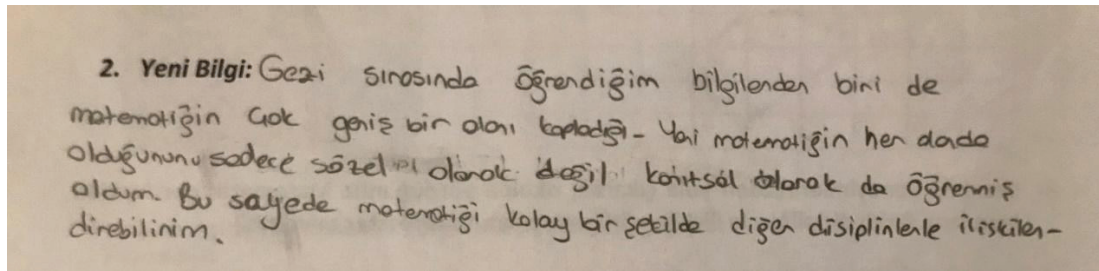 2. Yeni Bilgi: Gezi sırasında öğrendiğim bilgilerden biri de
matematiğin çok geniş bir alanı kapladığı - Yani matematiğin her alanda
olduğununu sadece sözel olarak değil kanıtsal olarak da öğrenmiş
oldum. Bu sayede matematiği kolay bir şekilde diğer disiplinlerle ilişkilen-
direbilirim.